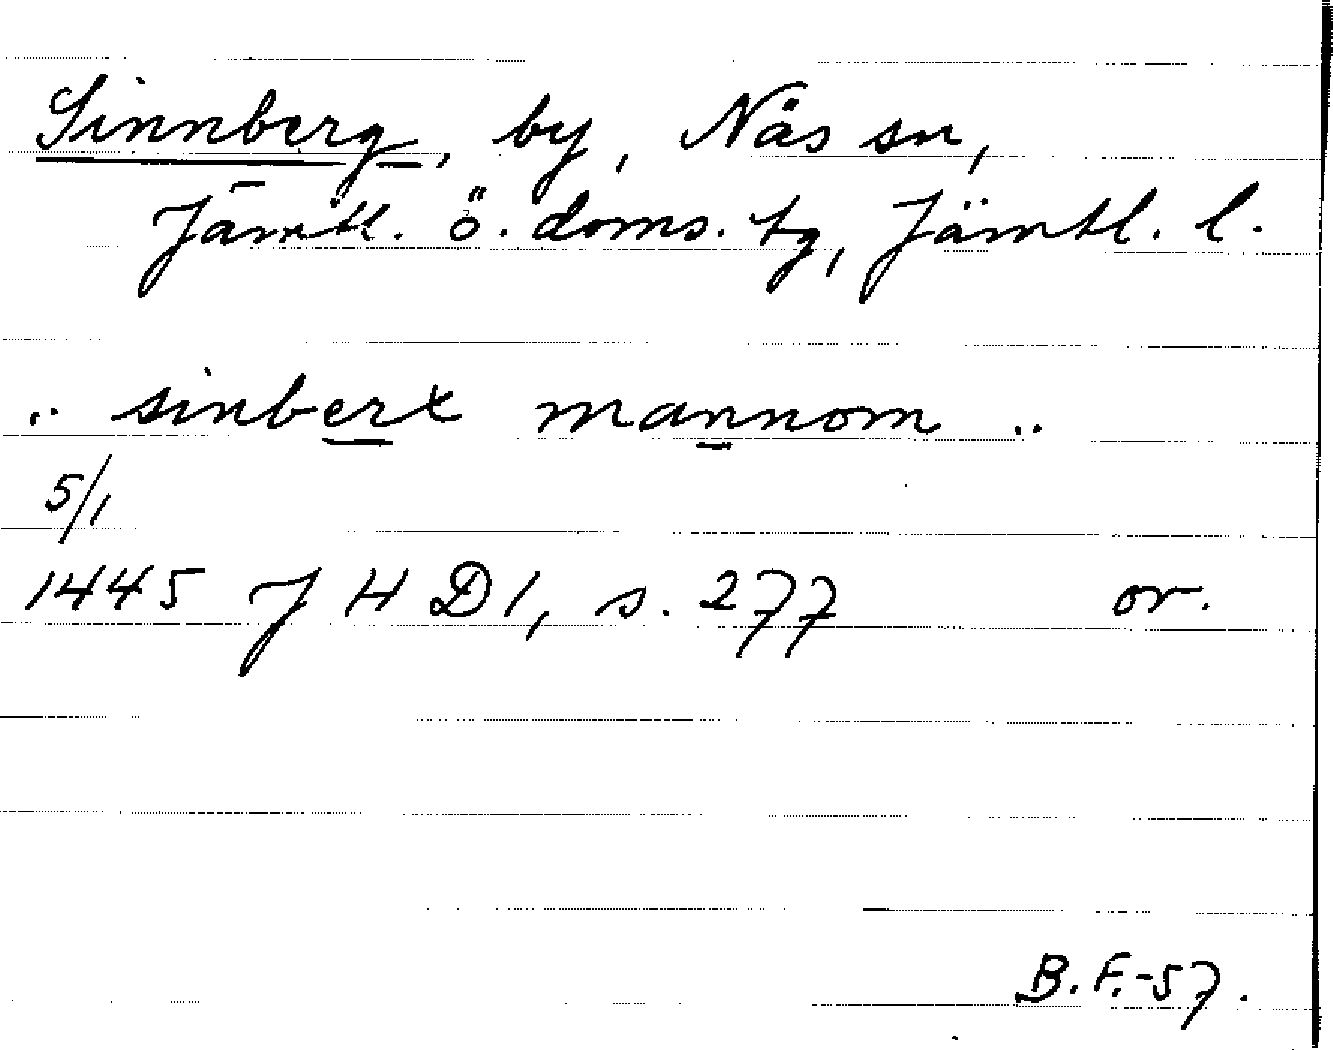 Sinnberg, by, Näs sn,
Jämtl. ö. doms. tg, Jämtl. l.
.. sinberx mannom ..
5/1
1445 J H D 1, s. 277 or.
B. F.-57.